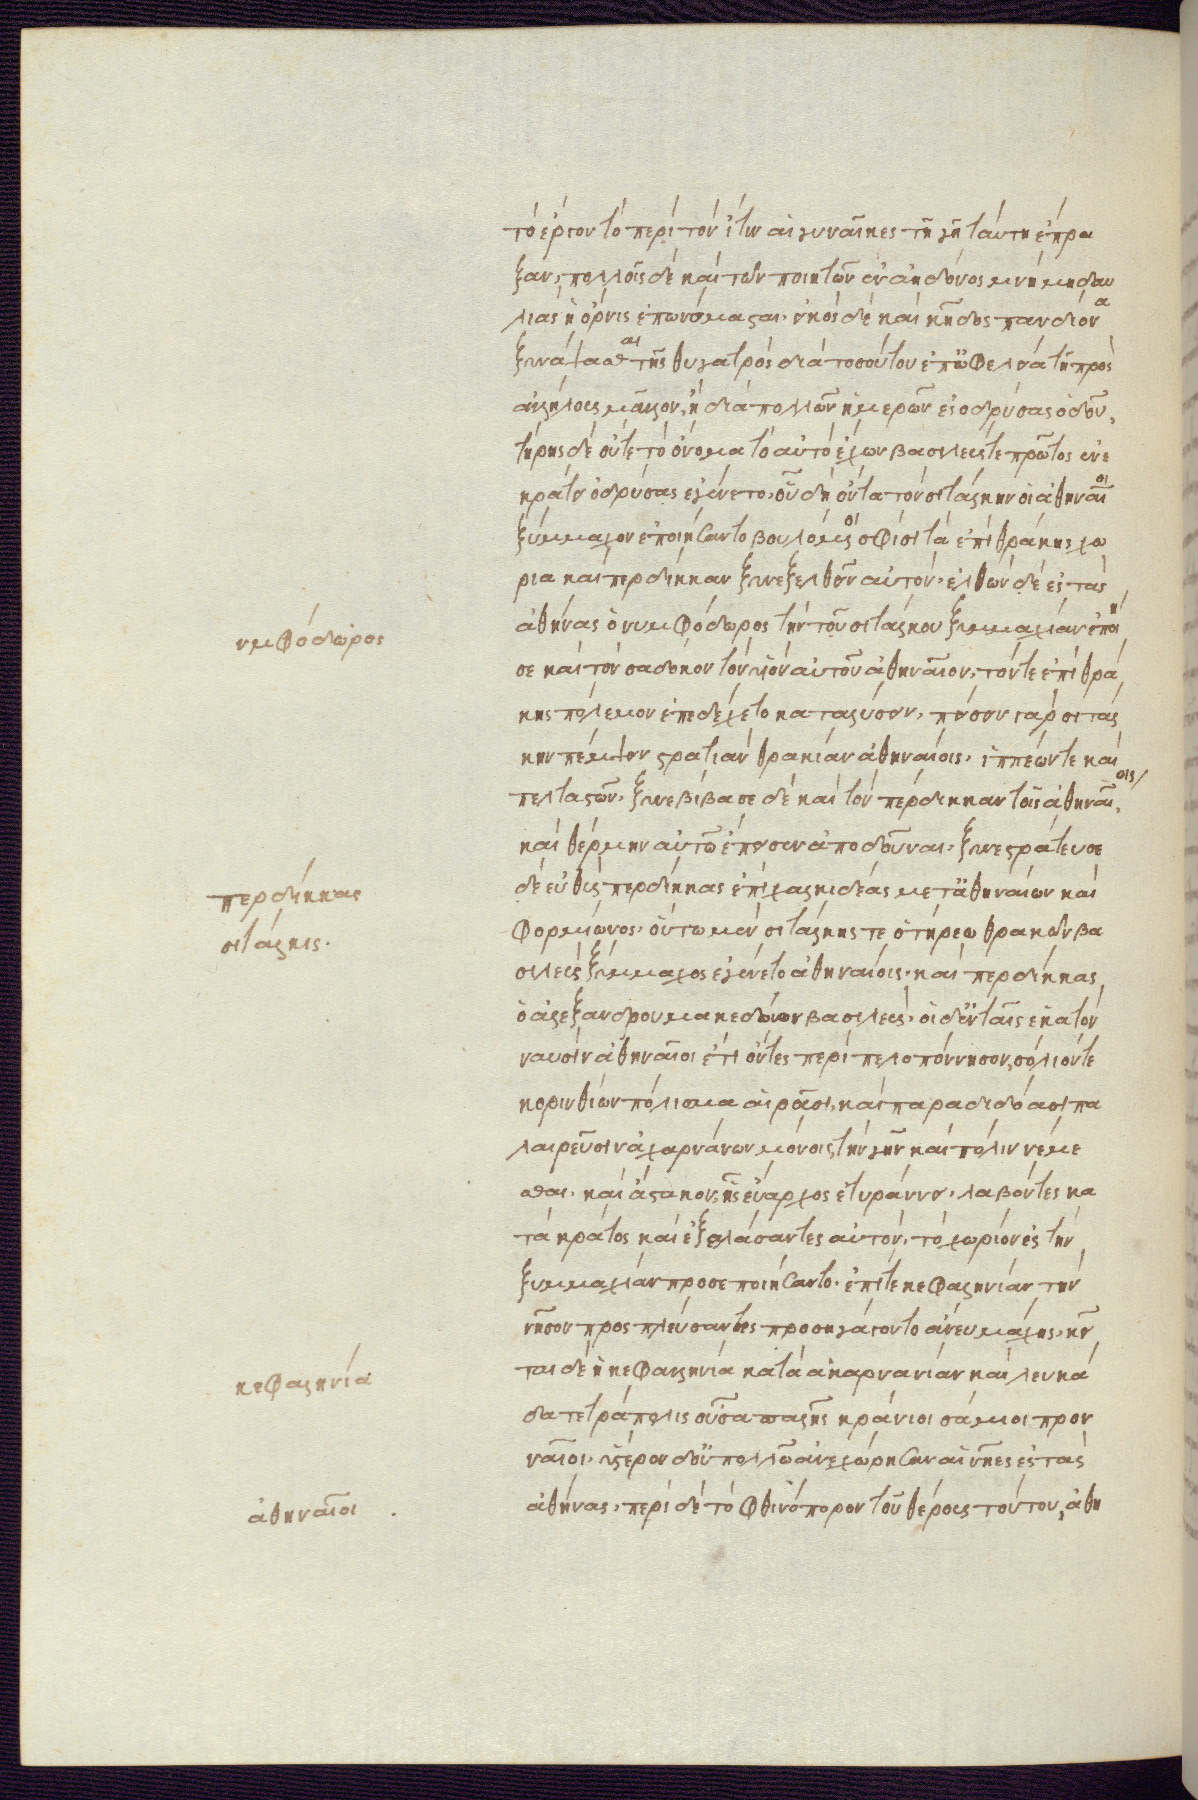 τὸ ἔργον τὸ περὶ τὸν ἴτυν αἱ γυναῖκες τῆ γῆ ταύτη ἔπρα
ξαν, πολλοῖς δὲ καὶ τῶν ποιητῶν ἐν ἀηδόνος μνήμη δαυ
λιὰς ἡ ὄρνις ἐπωνόμασται. εἰκὸς δὲ καὶ κῆδος πανδίονα
ξυνάψασθαι τῆς θυγατρὸς διὰ τοσούτου ἐπ' ὠφελεία τῆ πρὸς
ἀλλήλους μᾶλλον, ἢ διὰ πολλῶν ἡμερῶν ἐς ὀδρύσας ὁδοῦ.
τήρης δὲ οὔτε τὸ ὄνομα τὸ αὐτὸ ἔχων βασιλεύς τε πρῶτος ἐν
κράτει ὀδρύσας ἐγένετο. οὗ δὴ ὄντα τὸν σιτάλκην οἱ ἀθηναῖοι
ξύμμαχον ἐποιήσαντο βουλόμενοι σφίσι τὰ ἐπὶ θράκης χω
ρία καὶ περδίκκαν ξυνεξελθεῖν αὐτόν. ἐλθών δὲ ἐς τὰς
ἀθήνας ὁ νυμφόδωρος τήν τοῦ σιτάλκου ξυμμαχίαν ἐποίη
νμφόδωρος
σε καὶ τὸν σάδοκον τὸν υἱὸν αὐτοῦ ἀθηναῖον, τόν τε ἐπὶ θρά
κης πόλεμον ἐπεδέχετο καταλύσειν, πείσειν γὰρ σιτάλ
κην πέμψειν στρατιὰν θρακίαν ἀθηναίοις, ἱππέων τε καὶ
πελταστῶν. ξυνεβίβασε δὲ καὶ τὸν περδίκκαν τοῖς ἀθηναίοις,
καὶ θέρμην αὐτῶ ἔπεισεν ἀποδοῦναι. ξυνεστράτευσε
δὲ εὐθὺς περδίκκας ἐπὶ χαλκιδέας μετ' ἀθηναίων καὶ
περδίκκας
φορμίωνος. οὕτω μὲν σιτάλκης τε ὁ τήρεω θρακῶν βα
σιτάλκης.
σιλεὺς ξύμμαχος ἐγένετο ἀθηναίοις. καὶ περδίκκας
ὁ ἀλεξάνδρου μακεδόνων βασιλεύς. οἱ δ' ἐν ταῖς ἑκατὸν
ναυσὶν ἀθηναῖοι ἔτι ὄντες περὶ πελοπόννησον, σόλιόν τε
κορινθίων πόλισμα αἱροῦσι, καὶ παραδιδόασι πα
λαιρεῦσιν ἀχαρνάνων μόνοις τὴν γῆν καὶ πόλιν νέμε
σθαι. καὶ ἄστακον, ἧς εὔαρχος ἐτυράννει, λαβόντες κα
τὰ κράτος καὶ ἐξελάσαντες αὐτόν, τὸ χωρίον ἐς τὴν
ξυμμαχίαν προσεποιήσαντο. ἐπί τε κεφαληνίαν τὴν
νῆσον προςπλεύσαντες προσηγάγοντο ἄνευ μάχης, κεῖ
ται δὲ ἡ κεφαλληνία κατὰ ἀκαρνανίαν καὶ λευκά
κεφαληνία
δα τετράπολις οὖσα παλῆς κράνιοι σάμοι προν
ναῖοι. ὕστερον δ' οὐ πολλῶ ἀνεχώρησαν αἱ νῆες ἐς τὰς
ἀθήνας. περὶ δὲ τὸ φθινόπορον τοῦ θέρους τούτου, ἀθη
ἀθηναῖοι .